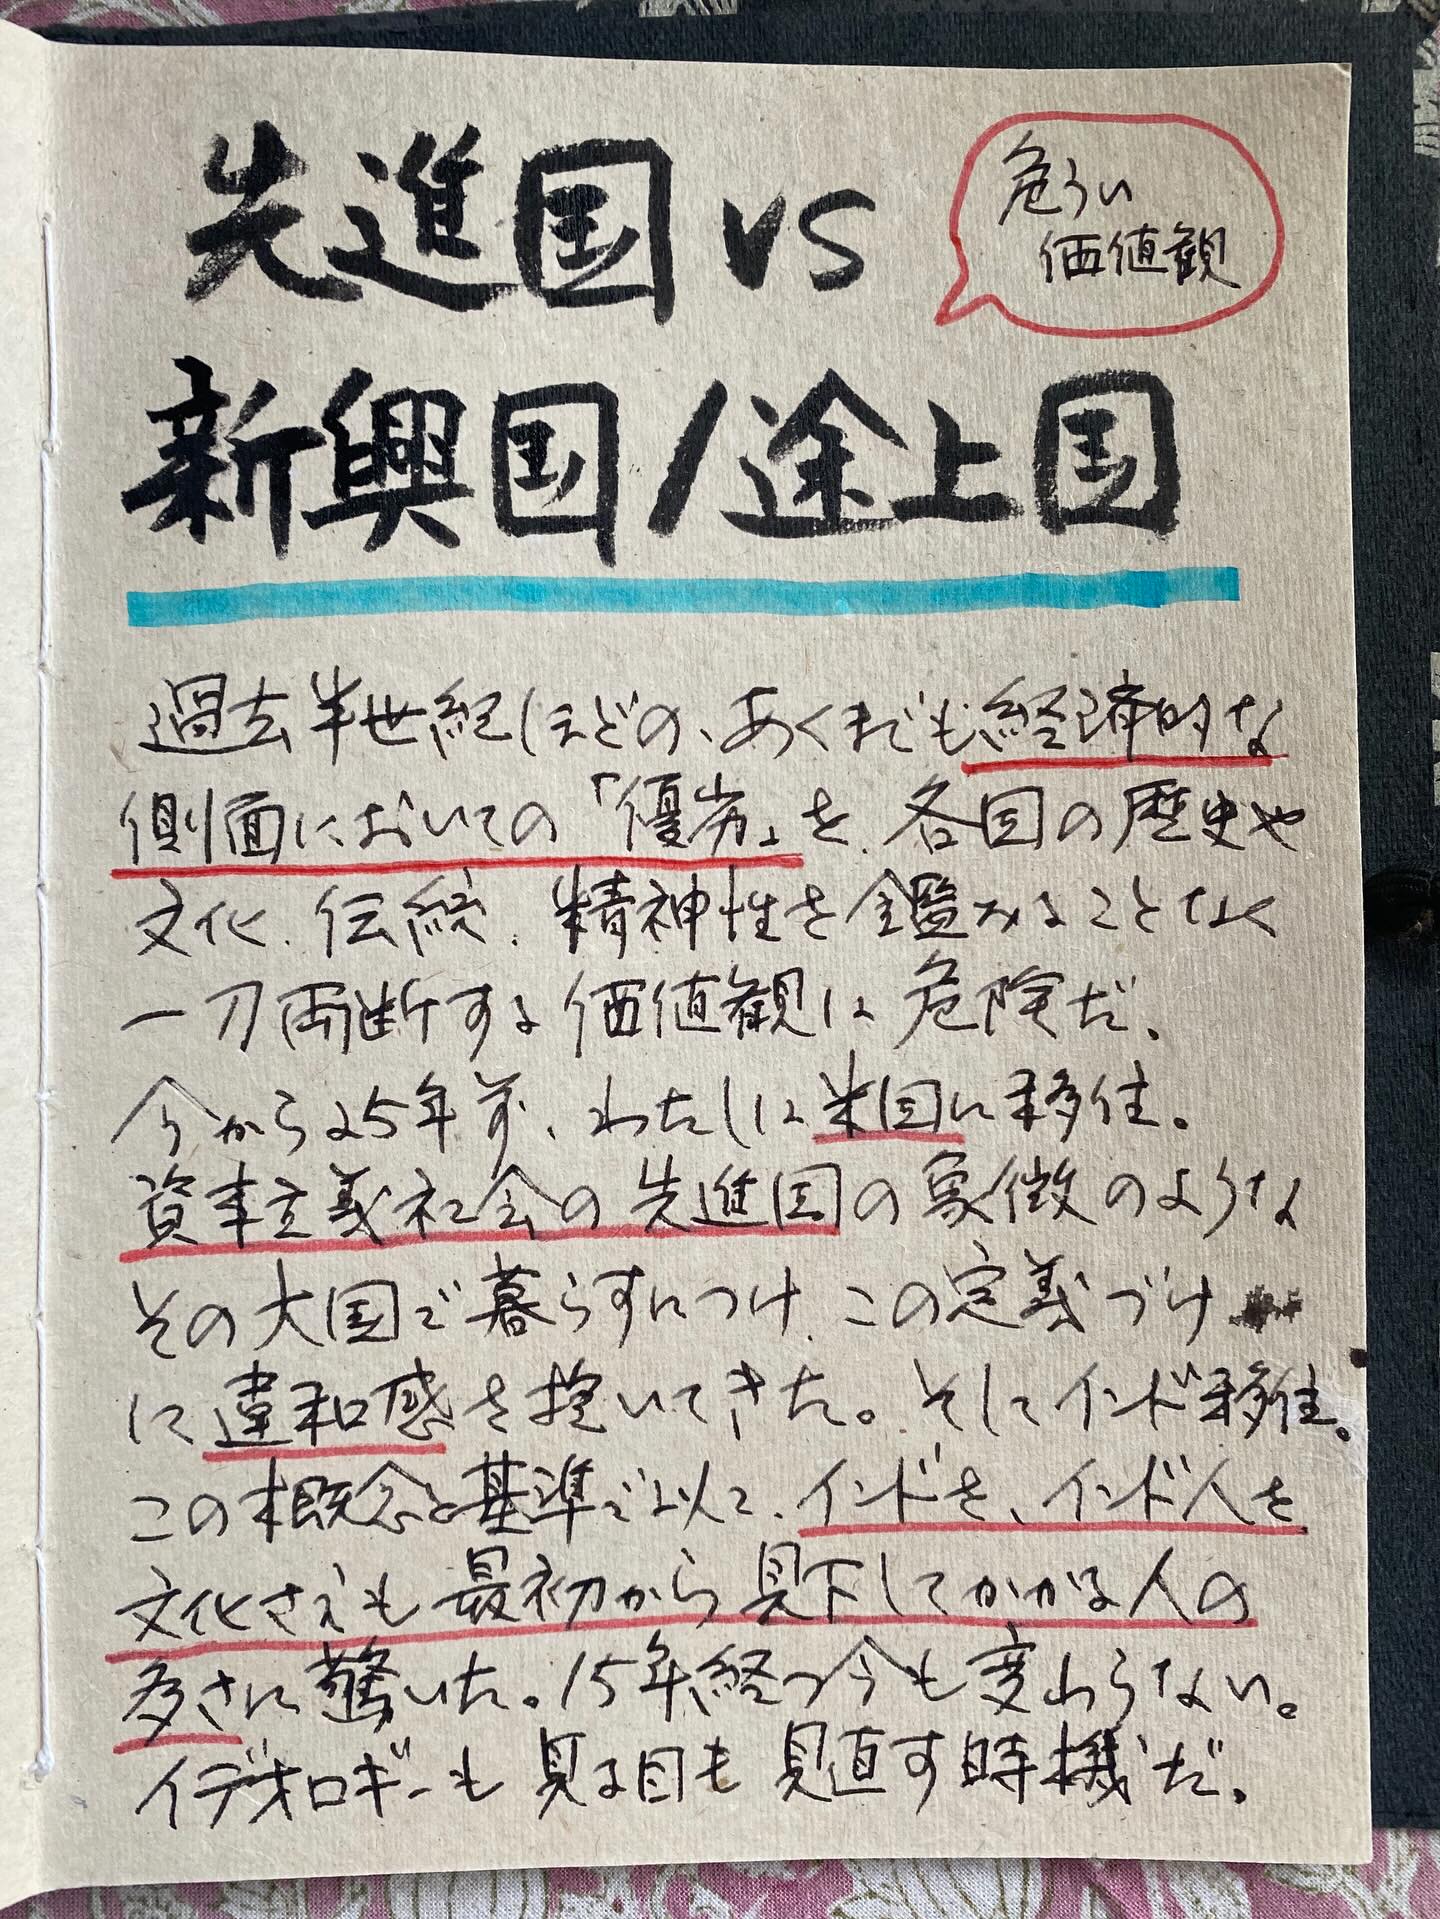 先進国 vs
危うい
価値観
新興国/途上国
過去半世紀ほどの、あくまでも経済的な
側面においての「優劣」を、各国の歴史や
文化、伝統、精神性を鑑みることなく
一刀両断する価値観は危険だ。
今から25年前、わたしは米国に移住。
資本主義社会の先進国の象徴のような
その大国で暮らすにつけ、この定義づけ
に違和感を抱いてきた。そしてインド移住。
この概念と基準で以て、インドを、インド人を
文化さえも最初から見下してかかる人の
多さに驚いた。15年経つ今も変わらない。
イデオロギーも見る目も見直す時機だ。